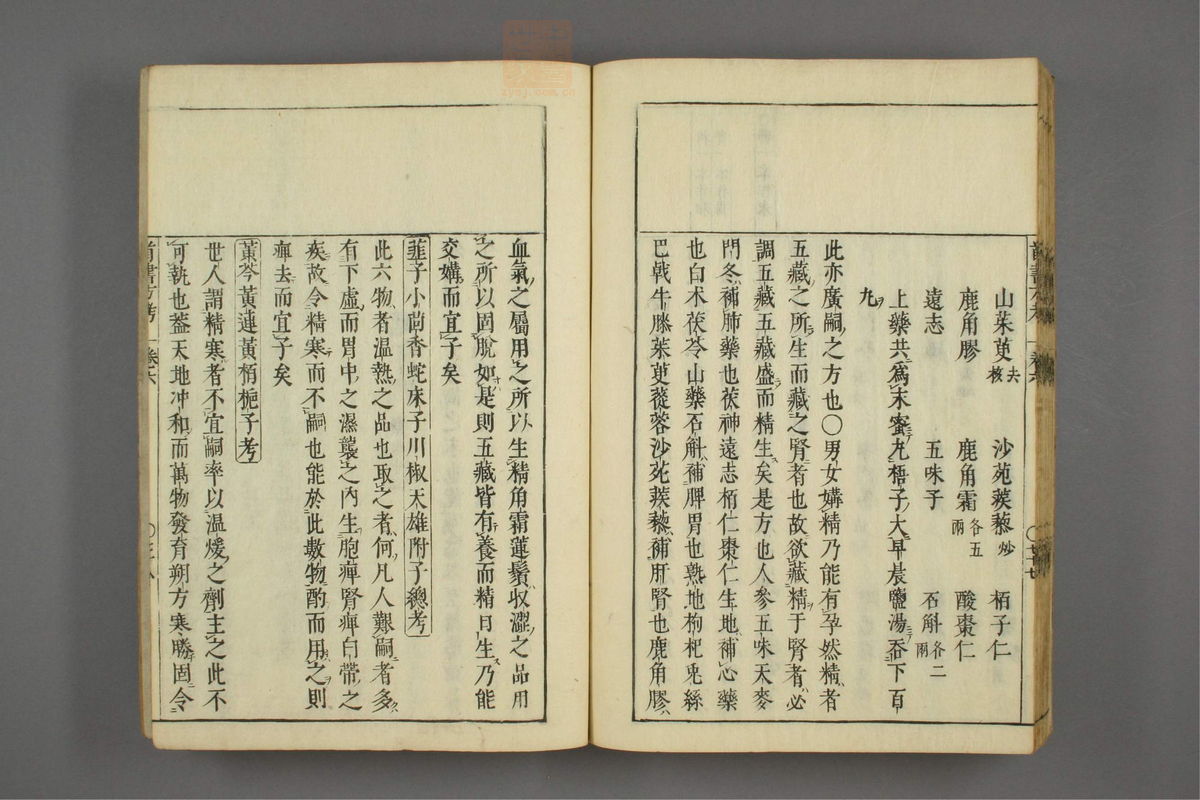 山茱萸去核　沙苑蒺藜炒　栢子仁
鹿角膠　鹿角霜各五兩　酸棗仁
遠志　五味子　石斛各二兩
上藥共爲末蜜丸梧子大早晨鹽湯吞下百
九
此亦廣嗣之方也〇男女媾精乃能有孕然精者
五藏之所生而藏之腎者也故欲藏精于腎者必
調五藏五藏盛而精生矣是方也人參五味天麥
門冬補肺藥也茯神遠志栢仁棗仁生地補心藥
也白术茯苓山藥石斛補脾胃也熟地枸杞兎絲
巴戟牛膝茱萸蓯蓉沙苑蒺藜補肝腎也鹿角膠
血氣之屬用之所以生精角霜蓮鬚收澀之品用
之所以固脫如是則五藏皆有養而精日生乃能
交媾而宜子矣
韮子小茴香蛇床子川椒天雄附子總考
此六物者溫熱之品也取之者何凡人艱嗣者多
有下虛而胃中之濕襲之內生胞痺腎痺白帶之
疾故令精寒而不嗣也能於此數物酌而用之則
痺去而宜子矣
黃芩黃連黃栢梔子考
世人謂精寒者不宜嗣率以溫煖之劑主之此不
可執也葢天地冲和而萬物發育朔方寒勝固令